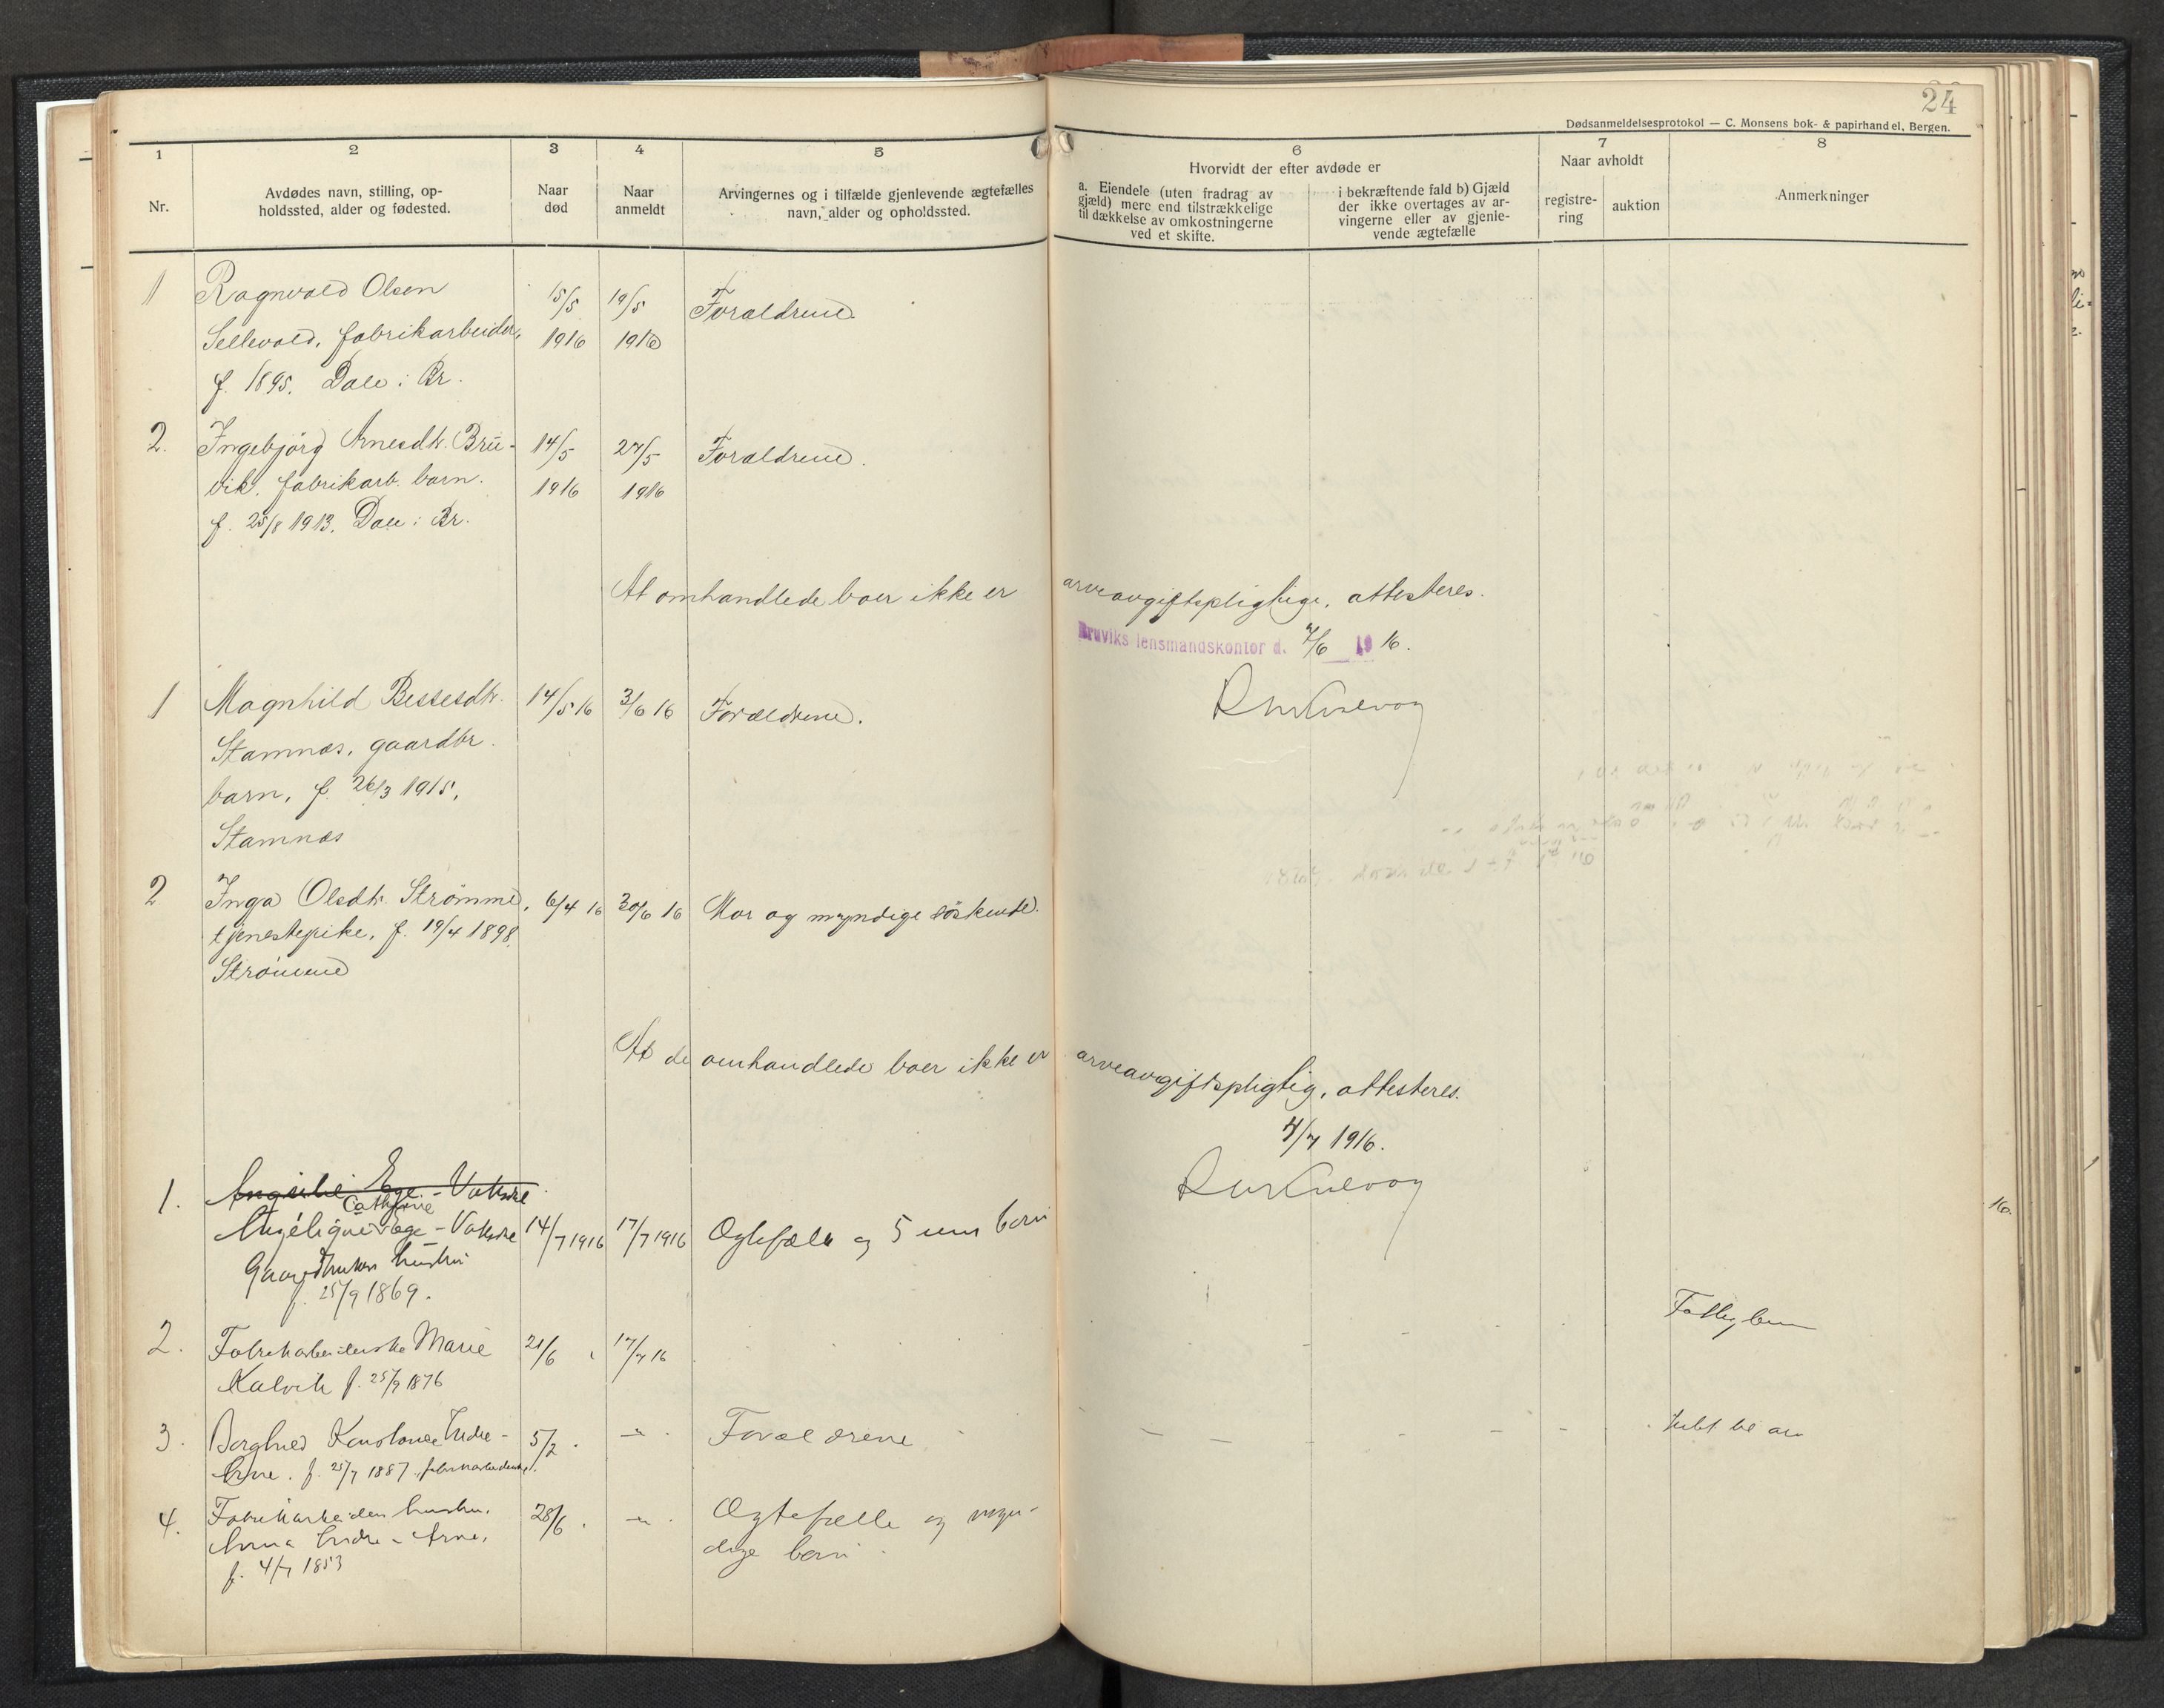 24
Dødsanmeldelsesprotokol — C. Monsens bok- & papirhandel, Bergen.
1 2 3 4 5 6 7 8
Nr.
Avdødes navn, stilling, op-
holdssted, alder og fødested.
Naar
død
Naar
anmeldt
Arvingernes og i tilfælde gjenlevende ægtefælles
navn, alder og opholdssted.
Hvorvidt der efter avdøde er
a. Eiendele (uten fradrag av
gjæld) mere end tilstrækkelige
til dækkelse av omkostningerne
ved et skifte.
i bekræftende fald b) Gjæld
der ikke overtages av ar-
vingerne eller av gjenle-
vende ægtefælle
Naar avholdt
registre-
ring
auktion
Anmerkninger
1 Ragnvald Olsen 15/5 19/5 Forældrene
Sellevold, fabrikarbeider, 1916 1916
f. 1895. Dale i Br.
2. Ingebjörg Arnesdtr. Bru- 14/5 27/5 Forældrene.
vik. fabrikarb. barn. 1916 1916
f. 25/8 1913. Dale i Br.
At omhandlede boer ikke er arveavgiftspligtige, attesteres.
Bruviks lensmandskontor d. 7/6 1916.
1 Magnhild Bessesdtr. 14/5 16 3/6 16 Forældrene.
Stamnæs, gaardbr.
barn, f. 26/3 1915,
Stamnæs
2 Inga Olsdtr. Strømme, 6/4 16 30/6 16 Mor og myndige söskende.
tjenestepike, f. 19/4 1898.
Strömme
At de omhandlede boer ikke er arveavgiftspligtig, attesteres.
4/7 1916.
1. Ege - Vaksdal
Cathrine
Angélique Ege - 14/7 1916 17/7 1916 Ægtefælle og 5 um. born
Gaardbruker hustru
f. 25/9 1869.
2. Fabrikarbeiderske Marie 21/6 17/7 16
Kalvik f. 25/9 1876
Fattiglem
3. Borghild Konstanse Indre - 5/2 . — " — . Forældrene
Arne. f. 25/7 1887. fabrikarbeiderske.
Intet til arv
4. Fabrikarbeider hustru. 28/6 . — " — . Ægtefælle og myn-
Anna Indre - Arne, dige born.
f. 4/7 1853
16.